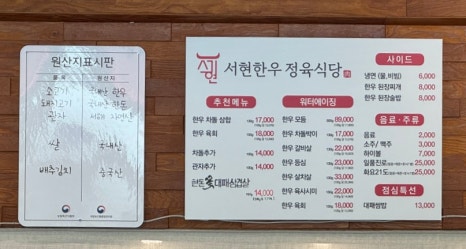 원산지표시판
품목 원산지
소고기 국내산 한우
돼지고기 국내산 한돈
관자
쌀 국내산
배추김치 중국산
서현
서현한우 정육식당
추천메뉴
한우 차돌 삼합 17,000
한우 육회 18,000
차돌추가 14,000
관자추가 14,000
한돈 대패삼겹살
14,000
워터에이징
한우 모듬 89,000
한우 차돌박이 17,000
한우 갈비살 22,000
한우 등심 23,000
한우 살치살 33,000
한우 육사시미 22,000
한우 육회 18,000
사이드
냉면 (물,비빔) 6,000
한우 된장찌개 8,000
한우 된장술밥 8,000
음료·주류
음료 2,000
소주/맥주 3,000
하이볼 7,000
일품진로 25,000
화요21도 25,000
점심특선
대패쌈밥 13,000